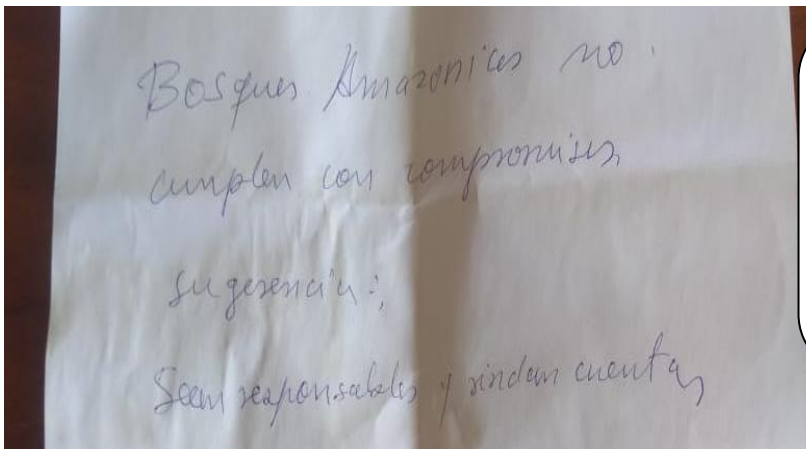 Bosques Amazonicos no.
cumplen con compromisos
sugerencia:
Sean responsables y rindan cuentas